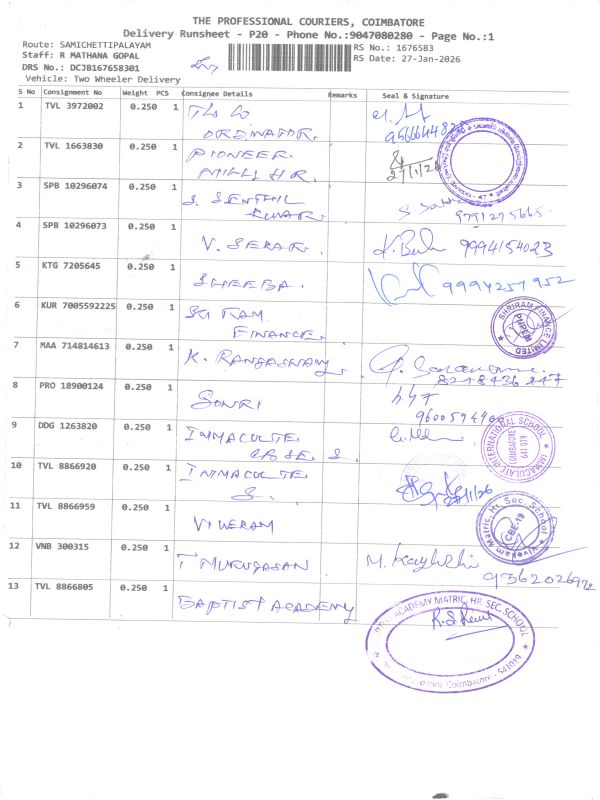 THE PROFESSIONAL COURIERS, COIMBATORE
Delivery Runsheet - P20 - Phone No.:9047080280 - Page No.:1
Route: SAMICHETTIPALAYAM
Staff: R MATHANA GOPAL
DRS No.: DCJB167658301
Vehicle: Two Wheeler Delivery
RS No.: 1676583
RS Date: 27-Jan-2026
S No Consignment No Weight PCS Consignee Details Remarks Seal & Signature
1 TVL 3972002 0.250 1
ORDINATOR.
2 TVL 1663830 0.250 1 PIONEER
MILL HR. 27/1/26
3 SPB 10296074 0.250 1 S. SENTHIL
KUMAR. 9791275665
4 SPB 10296073 0.250 1 V. SEKAR. 9994154023
5 KTG 7205645 0.250 1 SHEEBA. 9994257952
6 KUR 7005592225 0.250 1 SRI RAM
FINANCE. SHRIRAM FINANCE LIMITED
7 MAA 714814613 0.250 1 K. RANGASWAMY.
8 PRO 18900124 0.250 1 SONRI
9 DDG 1263820 0.250 1 IMMACULTE
CBSE S. IMMACULATE INTERNATIONAL SCHOOL COIMBATORE 641 019
10 TVL 8866920 0.250 1 IMMACULTE
S.
11 TVL 8866959 0.250 1 VIVEKAM Vivekam Matric. Hr. Sec. School CBE-19
12 VNB 300315 0.250 1 T MURUGASAN M.
9362026972
13 TVL 8866805 0.250 1 BAPTIST ACADEMY ACADEMY MATRIC. HR. SEC. SCHOOL
Coimbatore - 641019